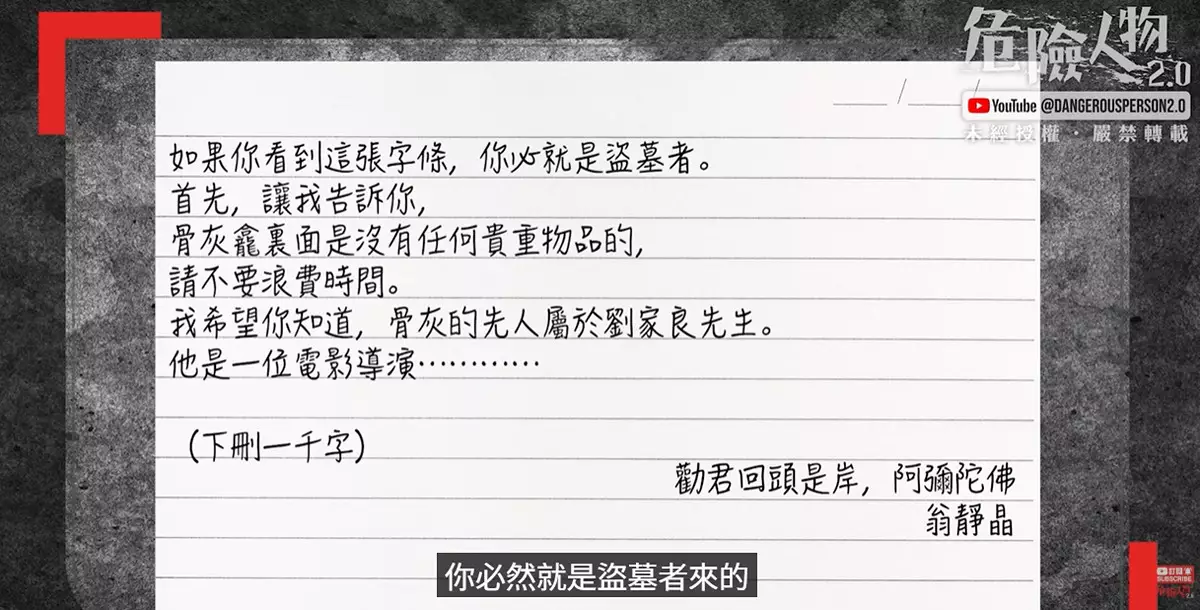 危險人物2.0
YouTube @DANGEROUSPERSON2.0
未經授權・嚴禁轉載
如果你看到這張字條，你必就是盜墓者。
首先，讓我告訴你，
骨灰龕裏面是沒有任何貴重物品的，
請不要浪費時間。
我希望你知道，骨灰的先人屬於劉家良先生。
他是一位電影導演…………
（下刪一千字）
勸君回頭是岸，阿彌陀佛
翁靜晶
你必然就是盜墓者來的
SUBSCRIBE